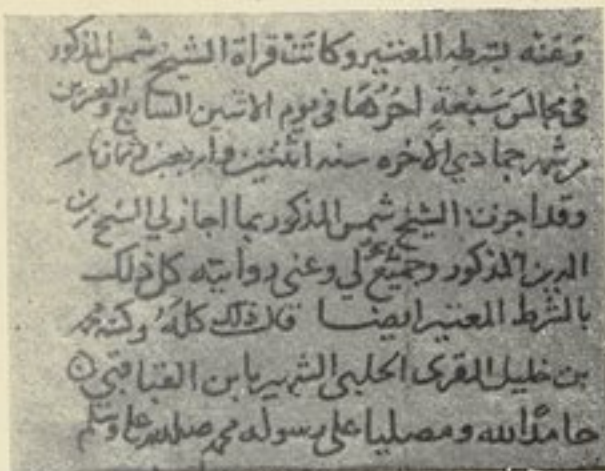 وعنه بشرطه المعتبر وكانت قراة الشيخ شمس المذكور
في مجالس سبعة اخرها في يوم الاثنين السابع والعشرين
من شهر جمادي الاخره سنه اثنتين واربعين وثمان
وقد اجزت الشيخ شمس المذكور بما اجاز لي الشيخ زين
الدين المذكور وجميع لي وعني روايته كل ذلك
بالشرط المعتبر ايضا قال ذلك كله وكتبه محمد
بن خليل المقرى الحلبي الشهير بابن القباقبي
حامدا لله ومصليا على رسوله محمد صلى الله عليه وسلم